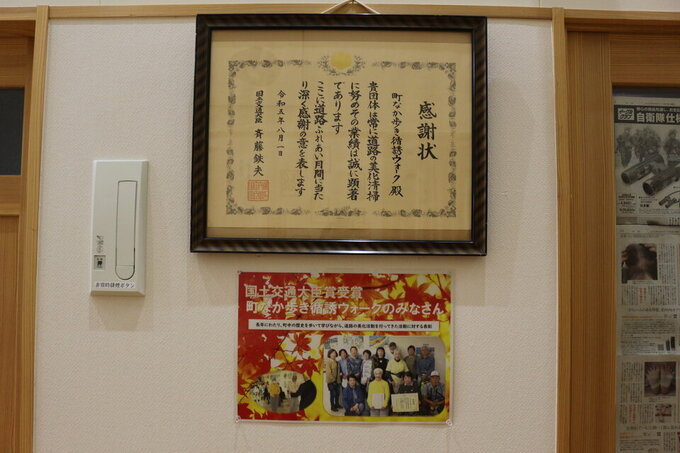 感謝状
町なか歩き循誘ウォーク 殿
貴団体は常に道路の美化清掃
に努めその業績は誠に顕著
であります
ここに道路ふれあい月間に当た
り深く感謝の意を表します
令和五年八月一日
国土交通大臣 斉藤鉄夫
非常時排煙ボタン
国土交通大臣賞受賞
町なか歩き循誘ウォークのみなさん
長年にわたり、町中の歴史を歩いて学びながら、道路の美化活動を行ってきた活動に対する表彰
自衛隊仕様